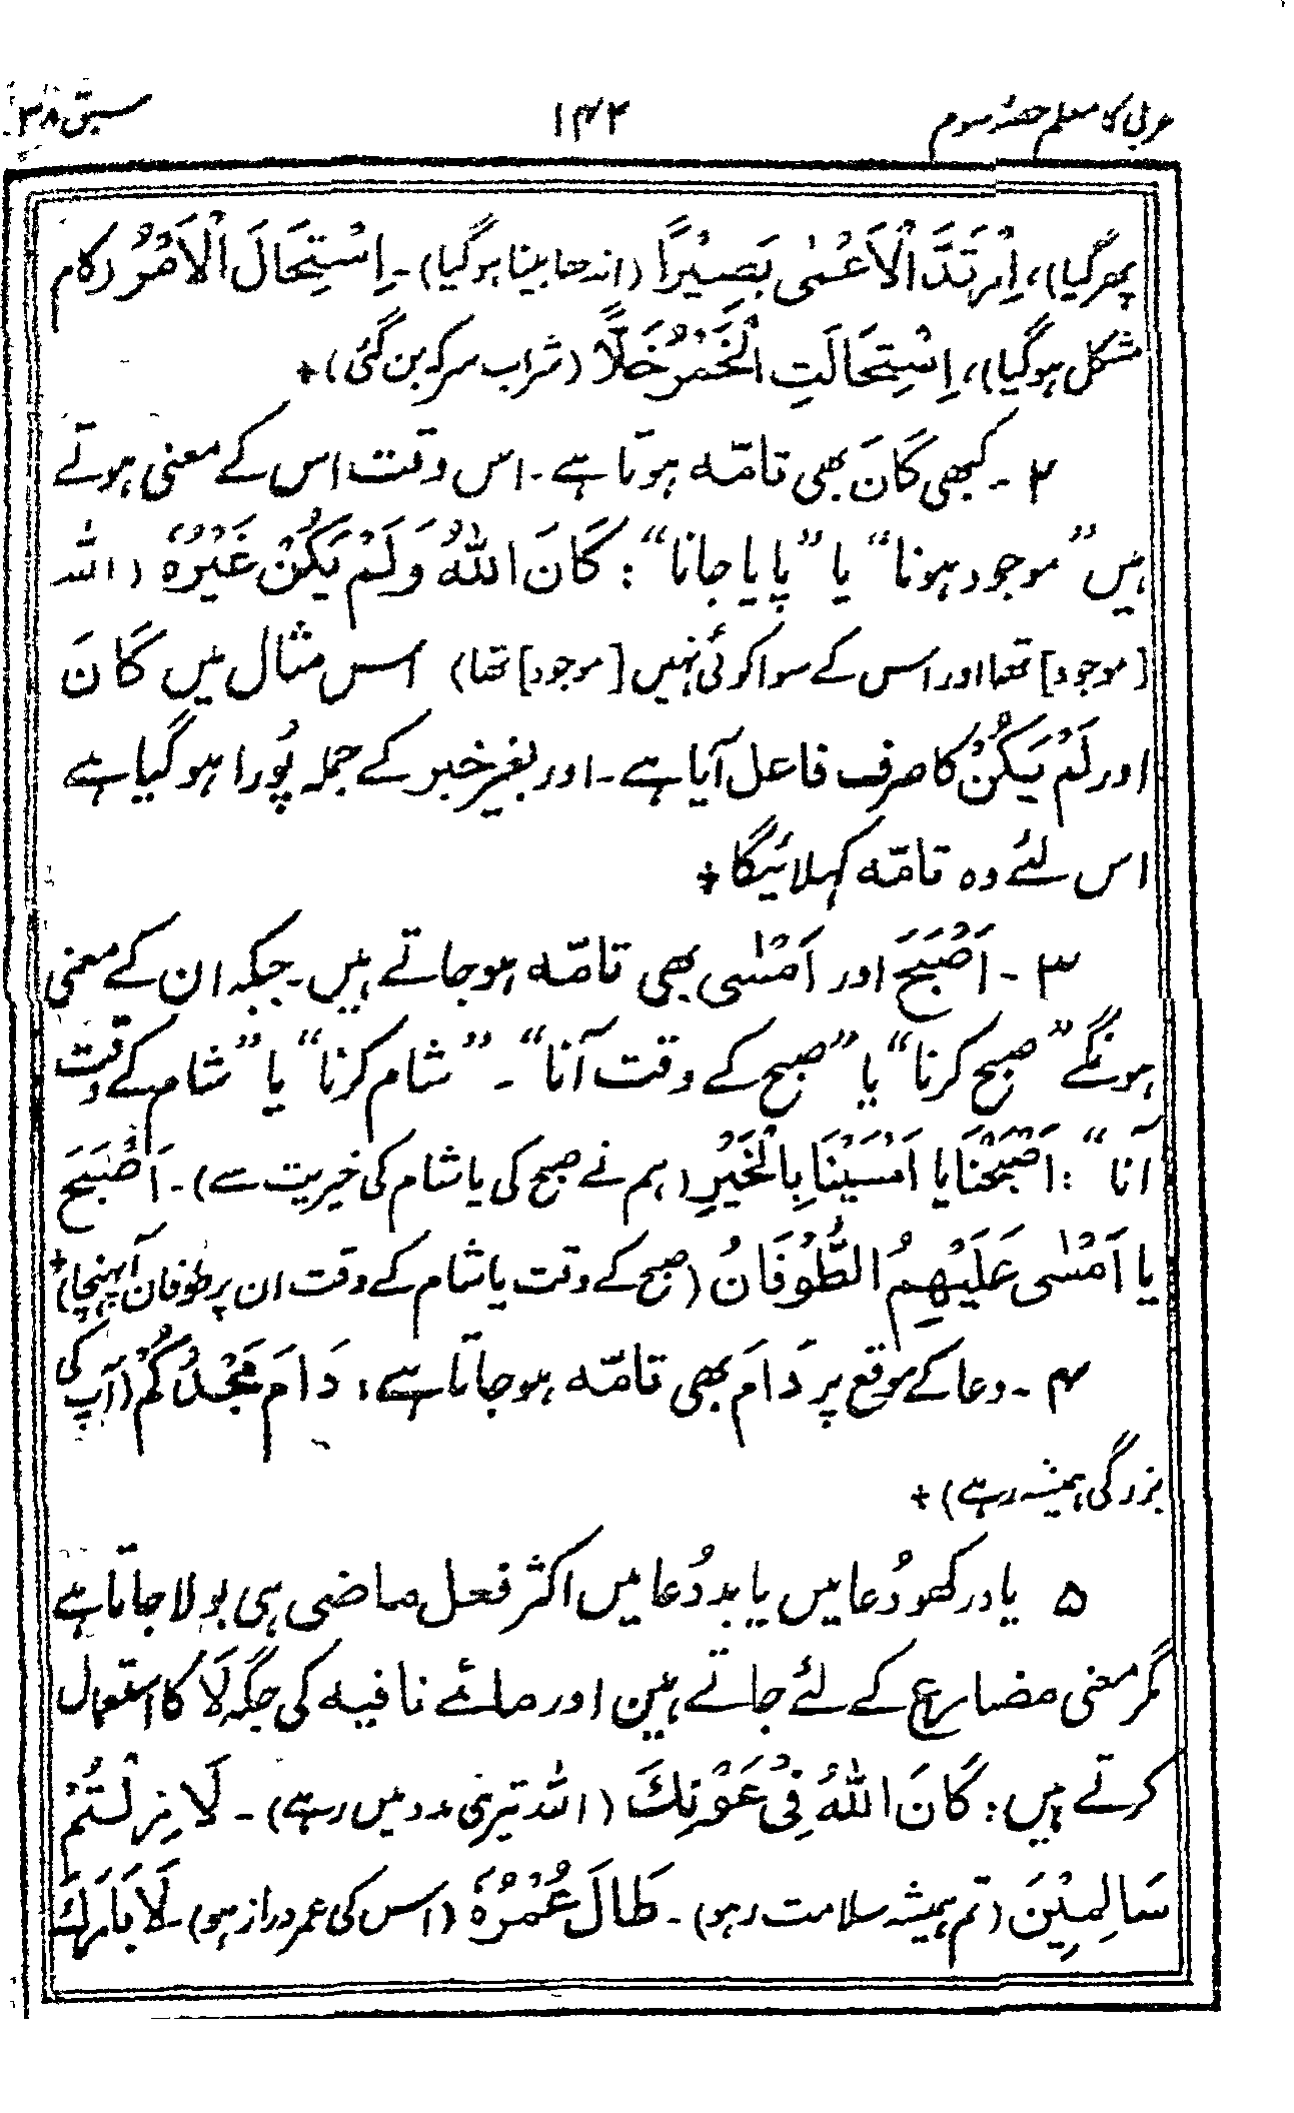 عربی کا معلم حصہ سوم ۱۴۲ سبق ۳۸
پھر گیا)، اِرْتَدَّ الْاَعْمٰی بَصِیْرًا (اندھا بینا ہو گیا)۔ اِسْتِحَالَ الْاَمْرُ (کام
مشکل ہو گیا)، اِسْتِحَالَتِ الْخَمْرُ خَلًّا (شراب سرکہ بن گئی) +
۲۔ کبھی کَانَ بھی تامّہ ہوتا ہے۔ اس وقت اس کے معنی ہوتے
ہیں ”موجود ہونا“ یا ”پایا جانا“: کَانَ اللّٰہُ وَلَمْ یَکُنْ غَیْرُہٗ (اللہ
[موجود] تھا اور اس کے سوا کوئی نہیں [موجود] تھا) اس مثال میں کَانَ
اور لَمْ یَکُنْ کا صرف فاعل آیا ہے۔ اور بغیر خبر کے جملہ پُورا ہو گیا ہے
اس لئے وہ تامّہ کہلائیگا +
۳۔ اَصْبَحَ اور اَمْسٰی بھی تامّہ ہو جاتے ہیں۔ جبکہ ان کے معنی
ہونگے ”صبح کرنا“ یا ”صبح کے وقت آنا“۔ ”شام کرنا“ یا ”شام کے وقت
آنا“: اَصْبَحْنَا یا اَمْسَیْنَا بِالْخَیْرِ (ہم نے صبح کی یا شام کی خیریت سے)۔ اَصْبَحَ
یا اَمْسٰی عَلَیْھِمُ الطُّوْفَانُ (صبح کے وقت یا شام کے وقت ان پر طوفان آپہنچا) +
۴۔ دعا کے موقع پر دَامَ بھی تامّہ ہو جاتا ہے: دَامَ مَجْدُکُمْ (آپ کی
بزرگی ہمیشہ رہے) +
۵ یاد رکھو دُعا میں یا بددُعا میں اکثر فعل ماضی ہی بولا جاتا ہے
مگر معنی مضارع کے لئے جاتے ہین اور مائے نافیہ کی جگہ لَا کا استعمال
کرتے ہیں: کَانَ اللّٰہُ فِیْ عَوْنِکَ (اللہ تیری مدد میں رہے)۔ لَا زِلْتُمْ
سَالِمِیْنَ (تم ہمیشہ سلامت رہو)۔ طَالَ عُمْرُہٗ (اس کی عمر دراز ہو)۔ لَا بَارَکَ